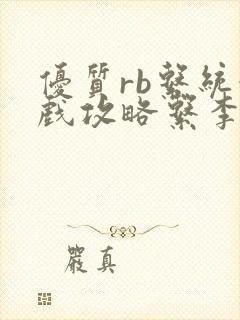 優質rb繫統
戲攻略繫李
嚴真